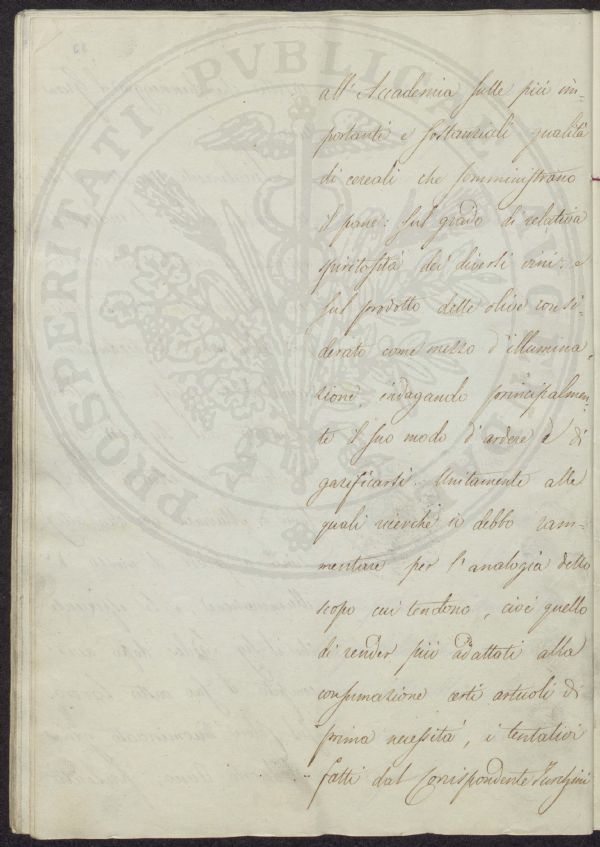 PROSPERITATI PVBLICAE AVGENDAE
all' Accademia sulle più im-
portanti e sostanziali qualità
di cereali che somministrano
il pane: sul grado di relativa
spiritosità dei diversi vini: e
sul prodotto delle olive consi-
derato come mezzo d'illumina-
zione indagando principalmen-
te il suo modo d'ardere e di
gazificarsi. Unitamente alle
quali ricerche io debbo ram-
mentare per l'analogia dello
scopo cui tendono, cioè quello
di render più adattati alla
consumazione certi articoli di
prima necessità, i tentativi
fatti dal Corrispondente